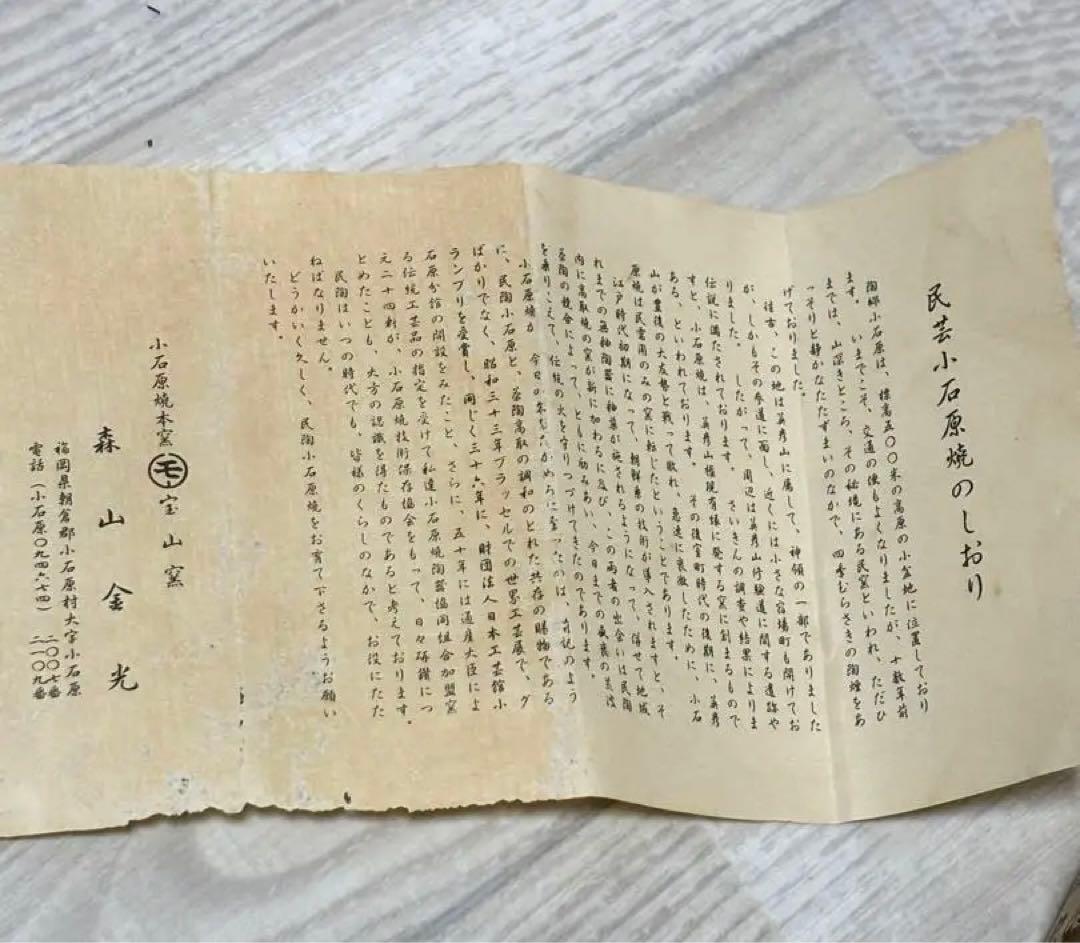 民芸小石原焼のしおり
陶郷小石原は、標高五〇〇米の高原の小盆地に位置しており
ます。 いまでこそ、交通の便もよくなりましたが、十数年前
までは、山深きところ、その秘境にある民窯といわれ、ただひ
っそりと静かなたたずまいのなかで、四季むらさきの陶煙をあ
げておりました。
往古、この地は英彦山に属して、神領の一部でありました
が、しかもその参道に面し、近くには小さな宿場町も開けてお
りました。 したがって、周辺は英彦山修験道に関する遺跡や
伝説に満たされております。 さいきんの調査や結果によりま
すと、小石原焼は、英彦山権現有縁に発する窯に創まるもので
ある、といわれております。 その後室町時代の後期に、英彦
山が豊後の大友勢と戦って敗れ、急速に衰微したために、小石
原焼は民需用のみの窯に転じたということであります。
江戸時代初期になって、朝鮮系の技術が導入されますと、そ
れまでの無釉陶器に釉薬が施されるようになって、併せて地域
内に高取焼の窯が新に加わるに及び、この両者の出会いは民陶
茶陶の競合によって、ともに励みあい、今日までの盛衰の荒波
を乗りこえて、伝統の火を守りつづけてきたのであります。
小石原焼が 今日の
に、民陶小石原と、茶陶高取の調和のとれた共存の賜物である
ばかりでなく、昭和三十三年ブラッセルでの世界工芸展で、グ
ランプリを受賞し、同じく三十六年に、財団法人日本工芸館小
石原分館の開設をみたこと、さらに、五十年には通産大臣によ
る伝統工芸品の指定を受けて私達小石原焼陶器協同組合加盟窯
元二十四軒が、小石原焼技術保存協会をもって、日々研鑽につ
とめたことも、大方の認識を得たものであると考えております。
民陶はいつの時代でも、皆様のくらしのなかで、お役にたた
ねばなりません。
どうかいく久しく、民陶小石原焼をお育て下さるようお願い
いたします。
小石原焼本窯 モ 宝山窯
森山金光
福岡県朝倉郡小石原村大字小石原
電話（小石原〇九四六七四） 二〇〇七番
二一〇九番